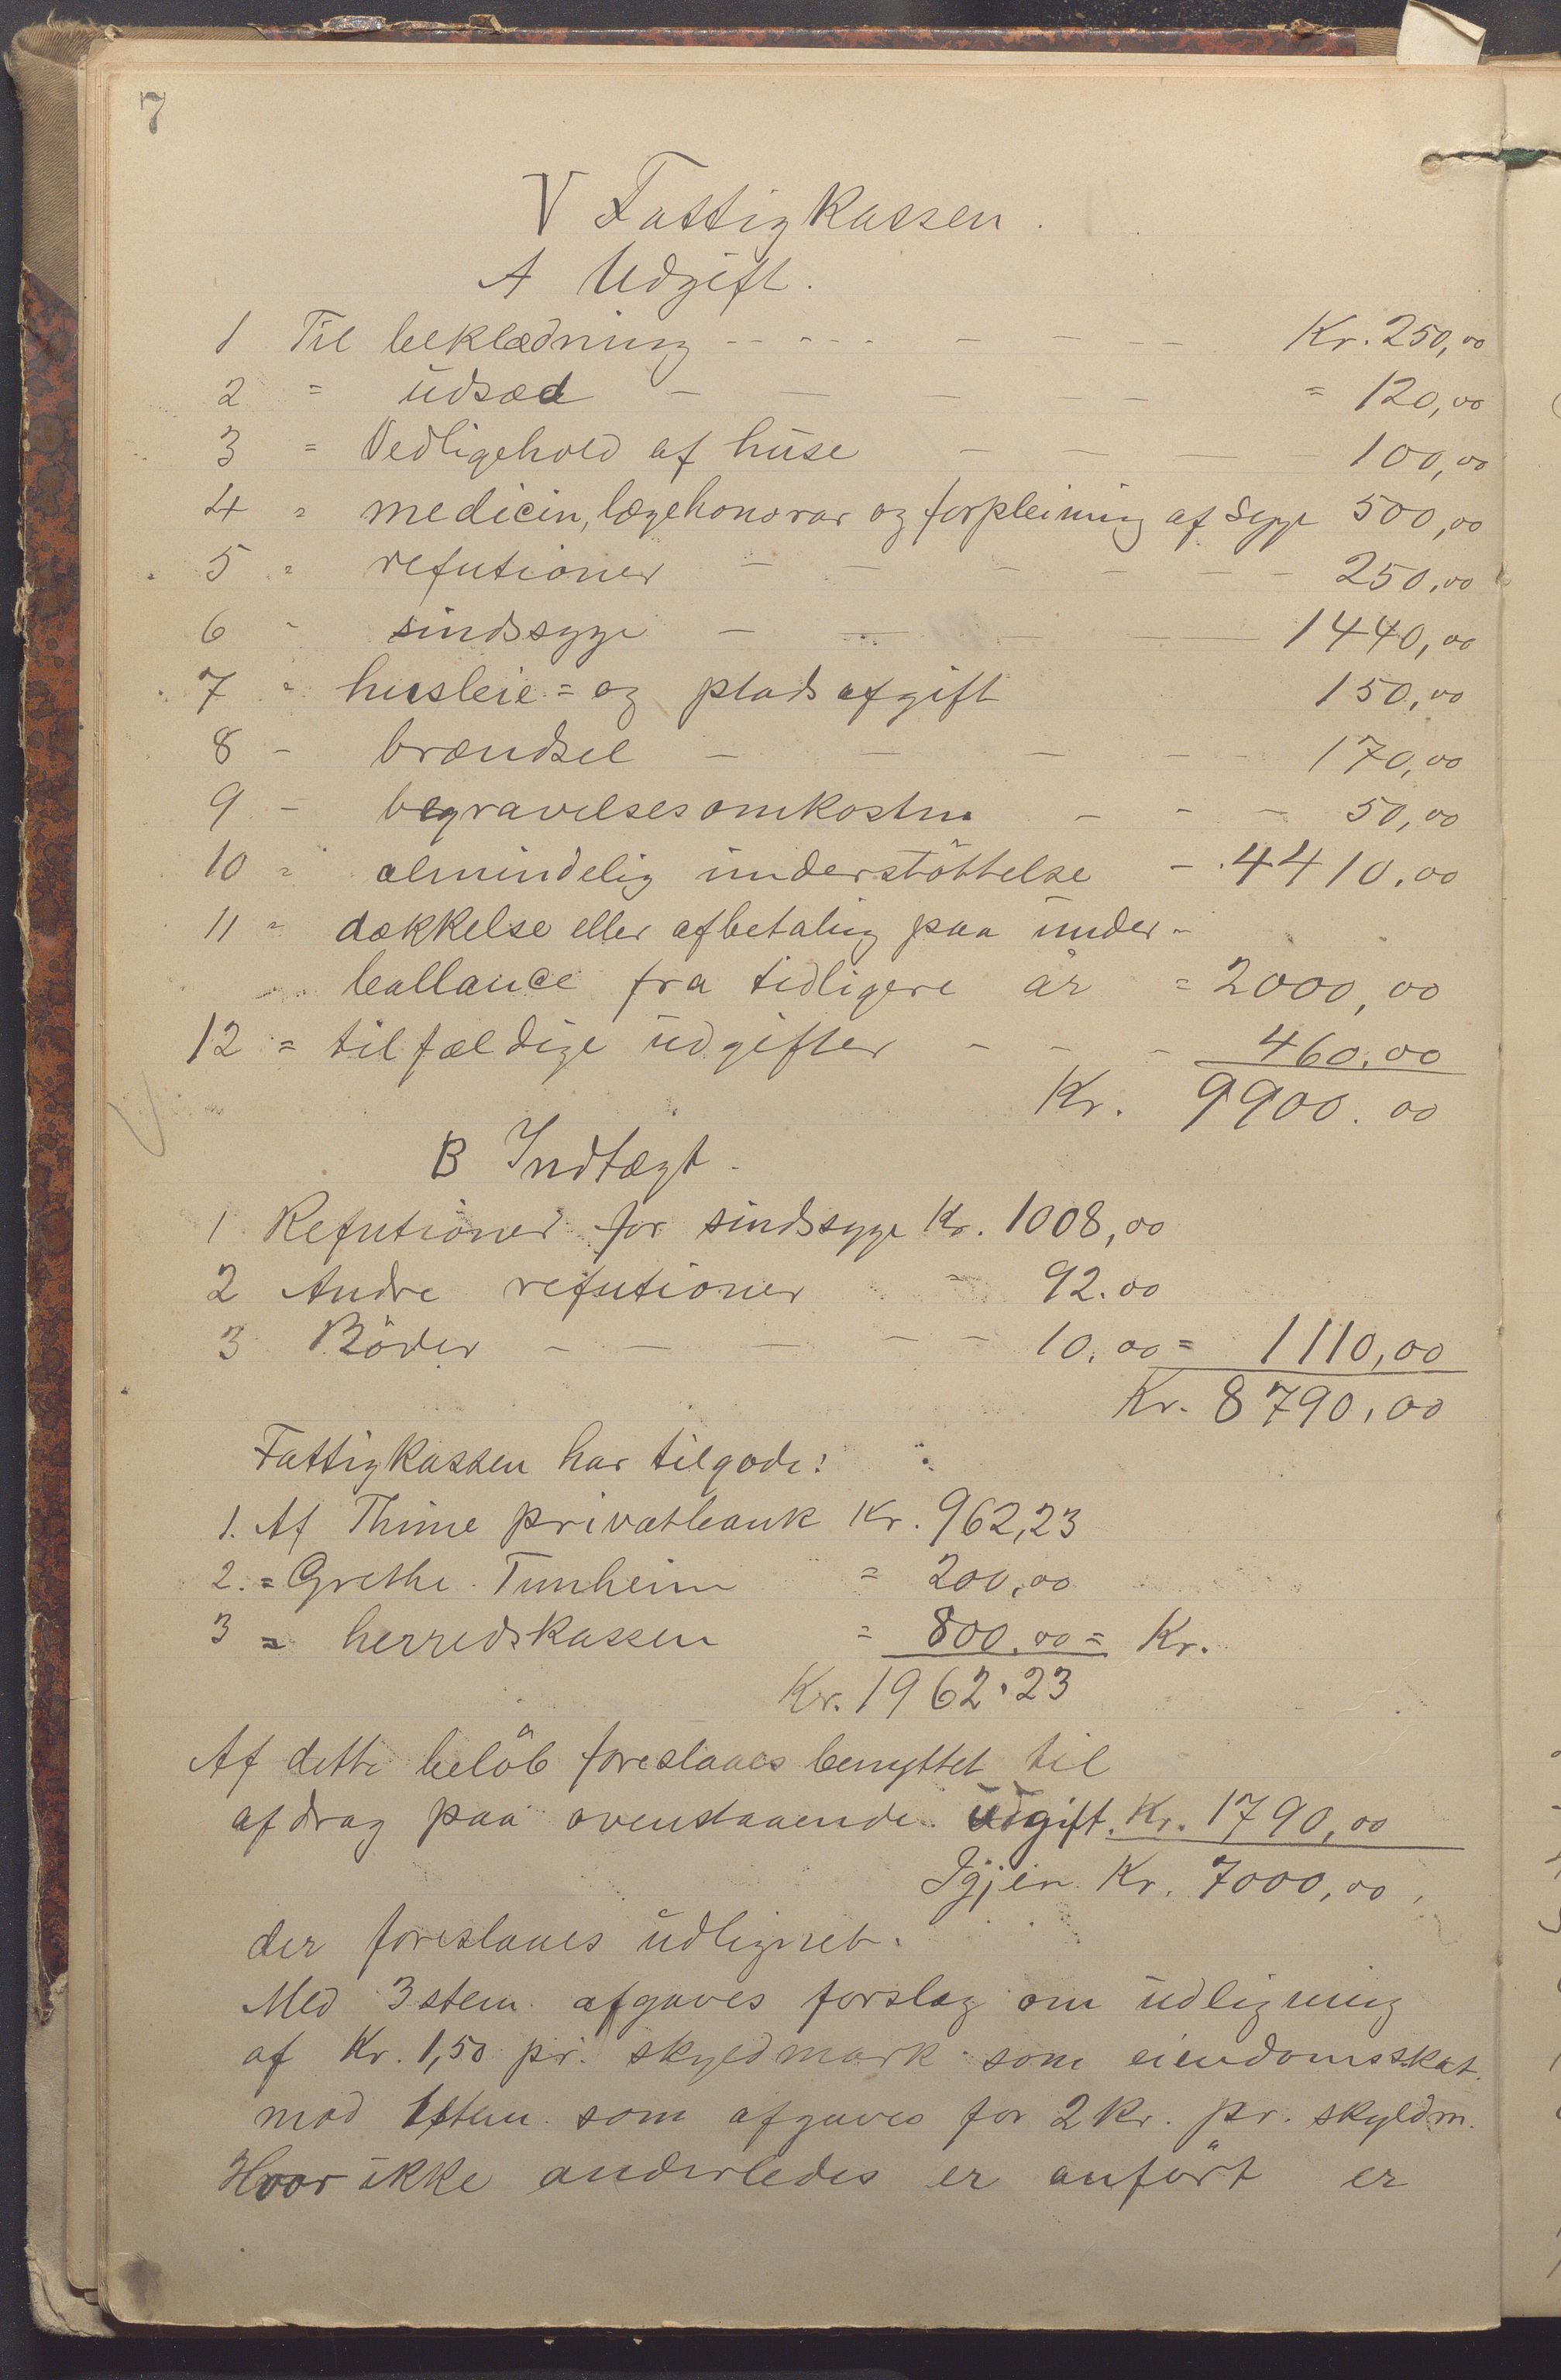 7
V Fattigkassen.
A Udgift.
1 Til beklædning - - - - - - - - Kr. 250,00
2 = udsæd - - - - - = 120,00
3 = Vedligehold af huse - - - - 100,00
4 = medicin, lægehonorar og forpleining af Syge 500,00
5 = refutioner - - - - - - 250,00
6 - sindssyge - - - - 1440,00
7 = husleie = og pladsafgift 150,00
8 - brændsel - - - - - 170,00
9 - begravelsesomkostn. - - - 50,00
10 = almindelig understöttelse - 4410,00
11 = dækkelse eller afbetaling paa under-
ballance fra tidligere år = 2000,00
12 = tilfældige udgifter - - - 460,00
Kr. 9900.00
B Indtægt -
1 Refutioner for sindssyge Kr. 1008,00
2 Andre refutioner = 92.00
3 Böder - - - - - 10,00 = 1110,00
Kr. 8790,00
Fattigkassen har tilgode:
1. Af Thime privatbank Kr. 962,23
2. = Grethe Tunheim = 200,00
3 = herredskassen = 800.00 = Kr.
Kr. 1962.23
Af dette belöb foreslaaes benyttet til
afdrag paa ovenstaaende udgift. Kr. 1790,00
Igjen Kr. 7000,00,
der foreslaaes udlignet.
Med 3 stem. afgaves forslag om udligning
af Kr. 1,50 pr. skyldmark som eiendomsskat.
mod 1 stem. som afgaves for 2 kr. pr. skyldm.
Hvor ikke anderledes er anfört er